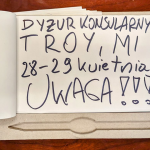 DYŻUR KONSULARNY
TROY, MI
28-29 kwietnia
UWAGA!!!